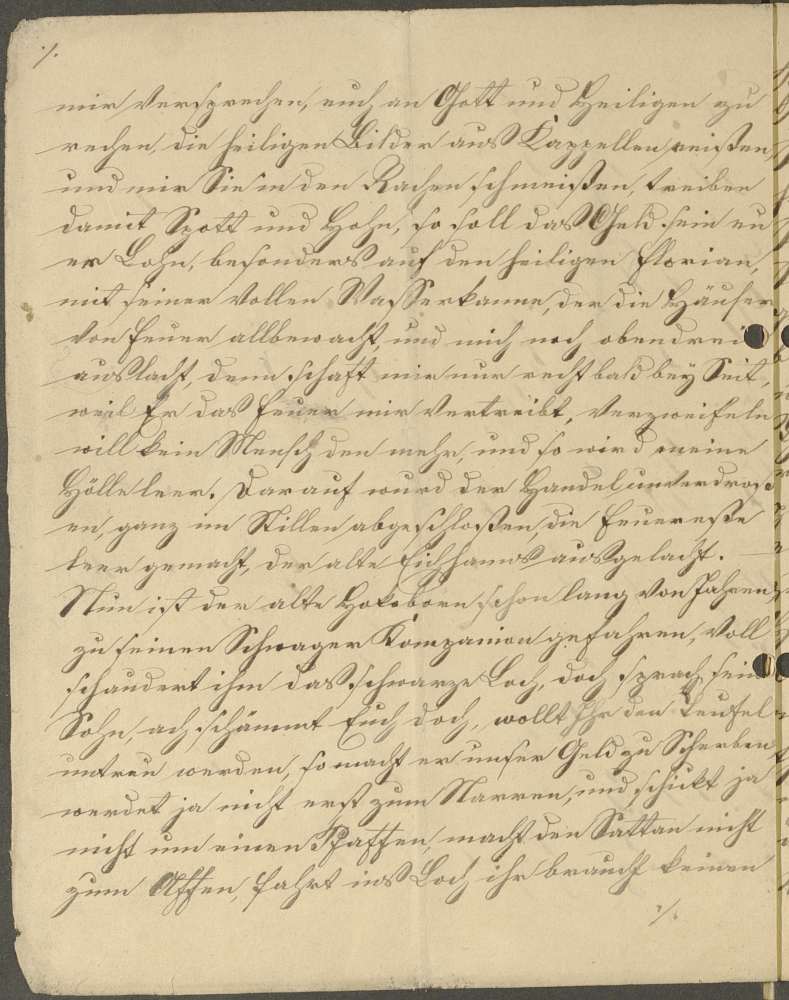 ./.
mir Versprechen, euch an Gott und Heiligen zu
rechen, die heiligen Bilder aus Kappellen reißen,
und mir Sie in den Rachen schmeißen, treiben
damit Spott und Hohn, so soll das Geld sein eu
er Lohn, besonders auf den heiligen Florian,
mit seiner vollen Wasserkanne, der die Häuser
von Feuer allbewacht und mich noch obendrei
auslacht, denn schaft mir nur recht bald bey Seit,
weil Er das Feuer mir Vertreibt, Verzweifeln
will kein Mensch den mehr, und so wird meine
Hölle leer. Darauf wurd der Handel unverdroß
en, ganz im Stillen abgeschloßen, die Feueresse
leer gemacht, der alte Eichhanns ausgelacht.
Nun ist der alte schon lang von Jahren,
zu seinen Schwager Kompanion gefahren, Voll
schaudert ihm das schwarze Loch, doch sprach sein
Sohn, ach schämmt Euch doch, wollt Ihr den Teufel
untreu werden, so macht er unser Geld zu Scherben,
werdet ja nicht erst zum Narren, und schickt ja
nicht um einen Pfaffen, macht den Sattan nicht
zum Affen, fahrt ins Loch ihr braucht keinen
./.